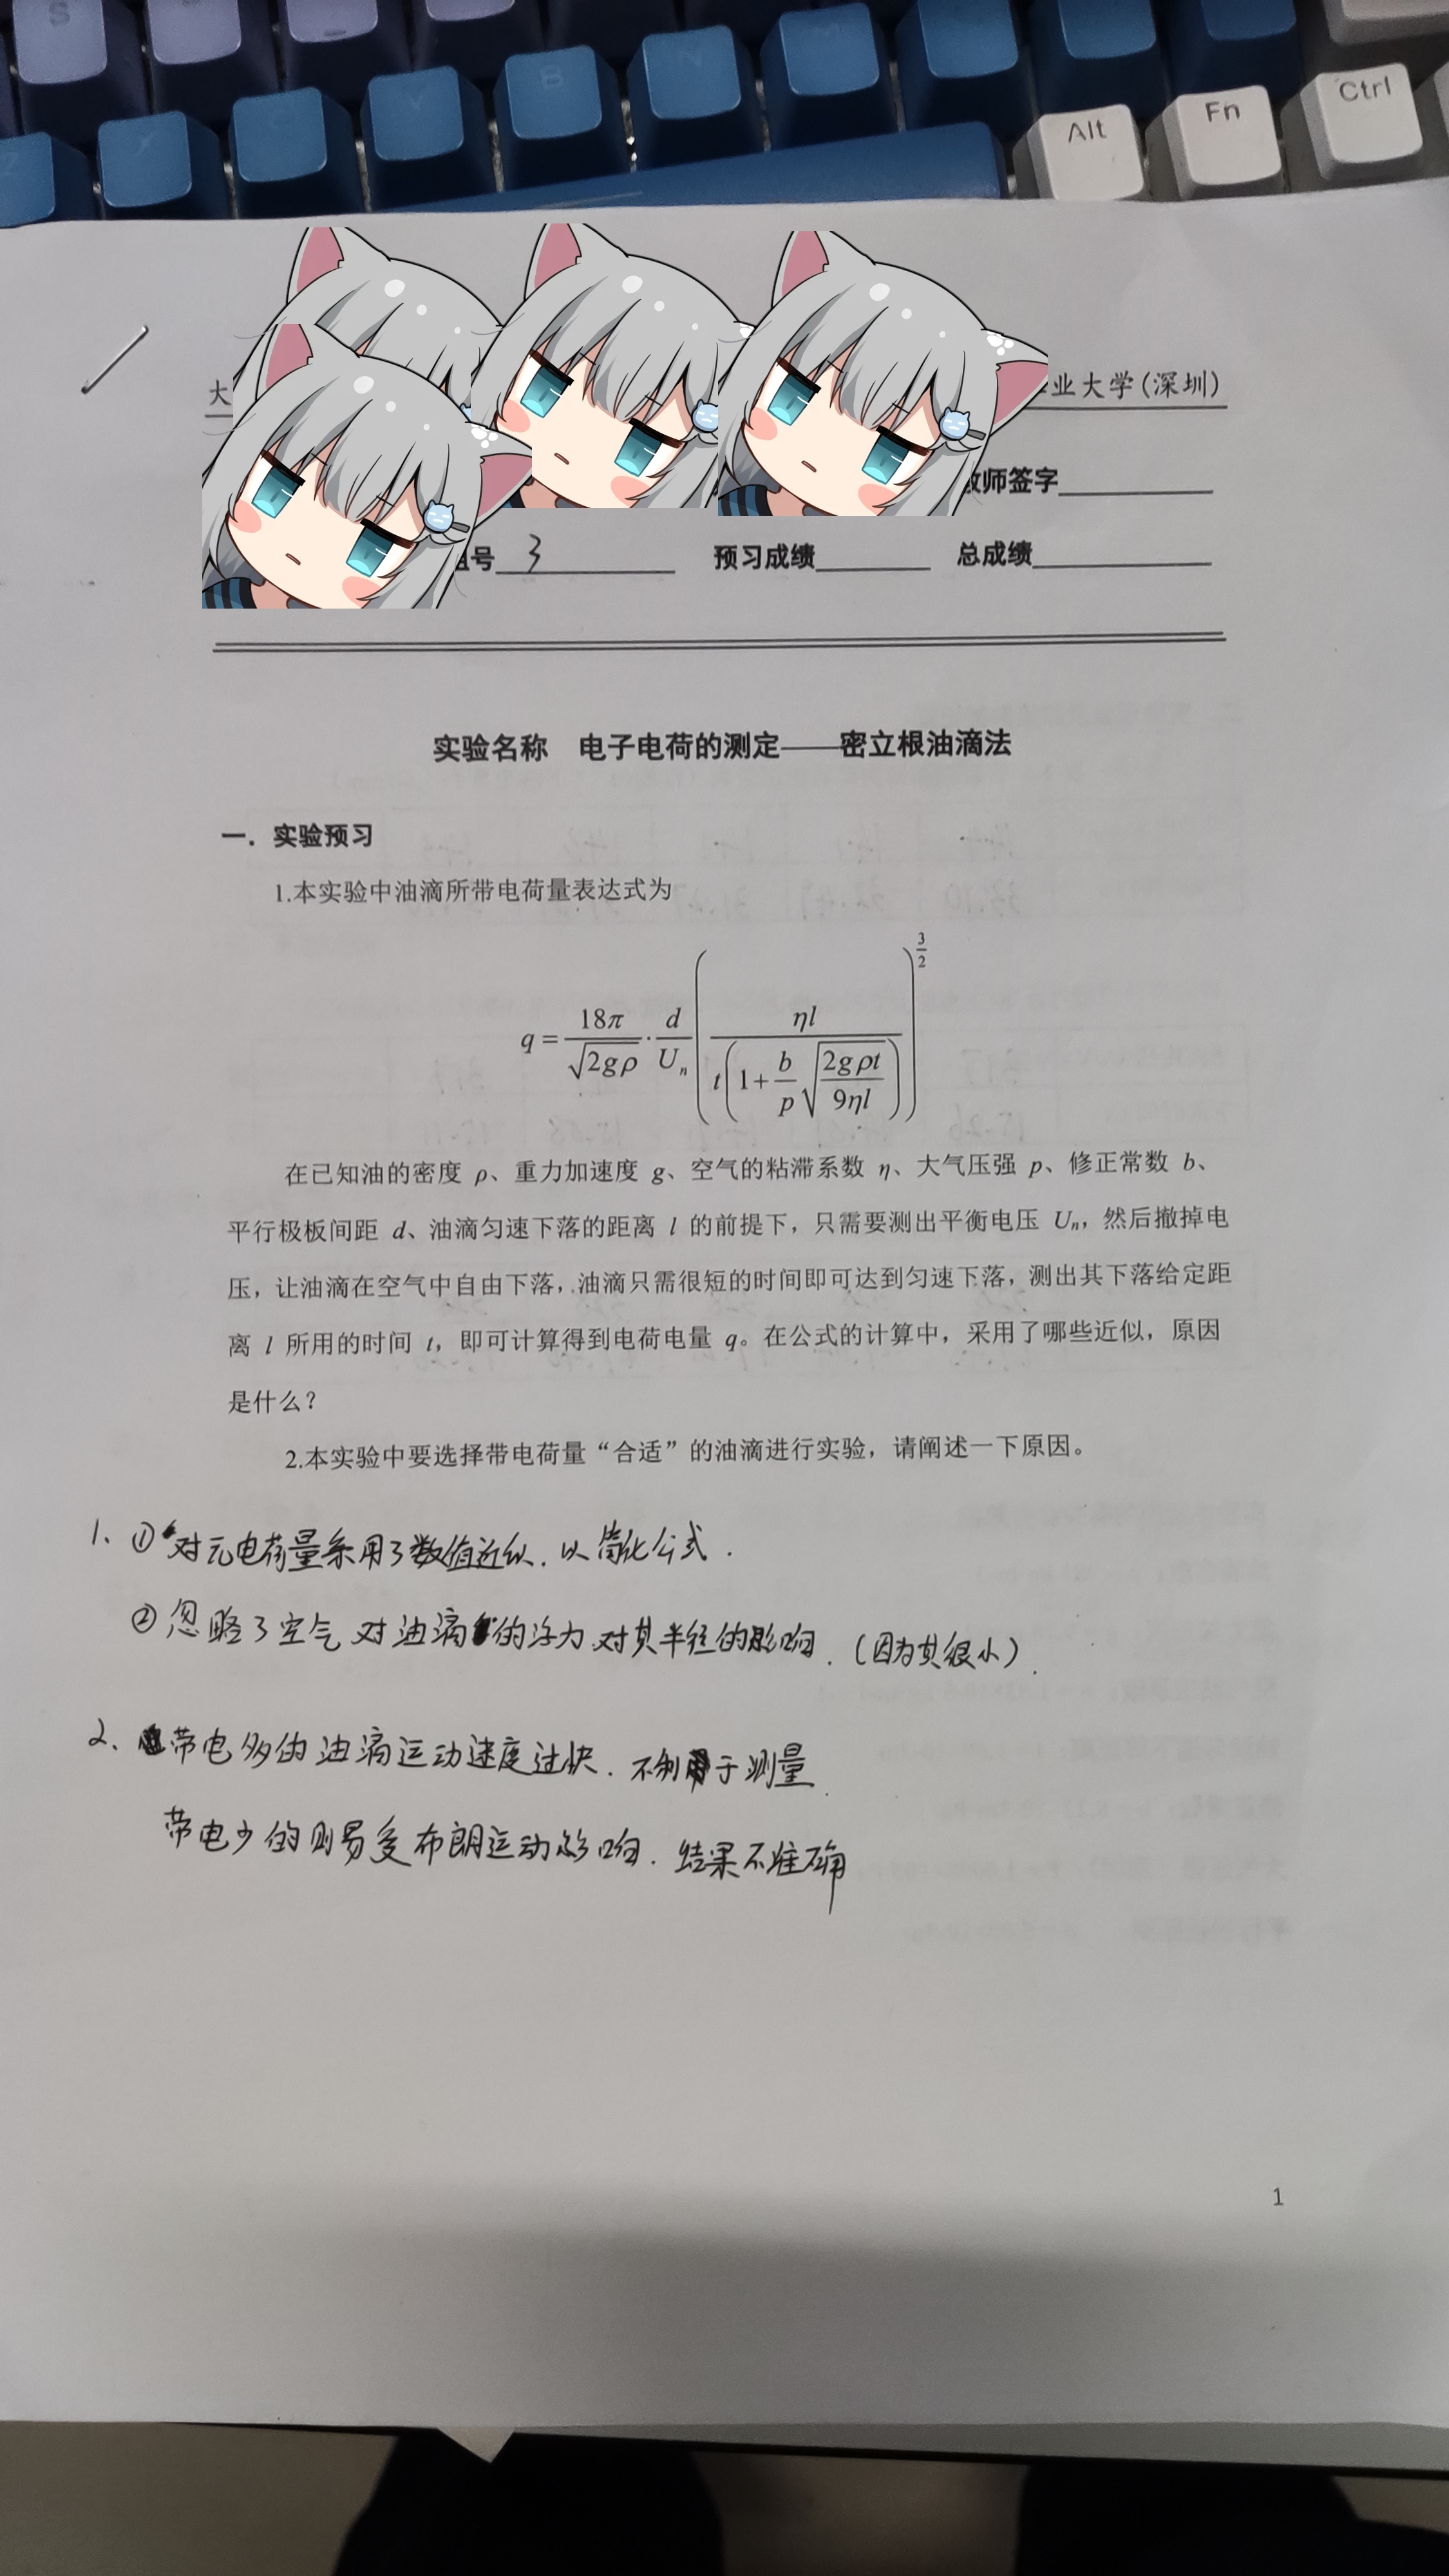 S
V
B
N
Alt
Fn
Ctrl
大
业大学(深圳)
教师签字
组号 3 预习成绩 总成绩
实验名称 电子电荷的测定——密立根油滴法
一．实验预习
1.本实验中油滴所带电荷量表达式为
q = 18π/√(2gρ) · d/Uₙ (ηl / t(1 + b/p √(2gρt/9ηl)))^(3/2)
在已知油的密度 ρ、重力加速度 g、空气的粘滞系数 η、大气压强 p、修正常数 b、
平行极板间距 d、油滴匀速下落的距离 l 的前提下，只需要测出平衡电压 Uₙ，然后撤掉电
压，让油滴在空气中自由下落，油滴只需很短的时间即可达到匀速下落，测出其下落给定距
离 l 所用的时间 t，即可计算得到电荷电量 q。在公式的计算中，采用了哪些近似，原因
是什么？
2.本实验中要选择带电荷量“合适”的油滴进行实验，请阐述一下原因。
1. ① 对元电荷量采用了数值近似．以简化公式．
② 忽略了空气对油滴的浮力对其半径的影响．(因为其很小)．
2. 带电多的油滴运动速度过快．不利于测量．
带电少的则易受布朗运动影响．结果不准确
1